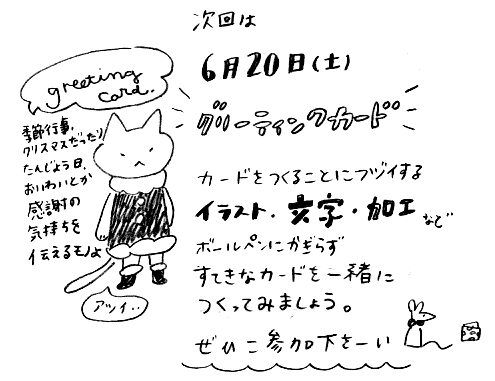 次回は
6月20日(土)
グリーティングカード
greeting
card.
季節行事、
クリスマスだったり
たんじょう日、
おいわいとか
感謝の
気持ちを
伝えるモノよ
アツイ..
カードをつくることにフヅイする
イラスト・文字・加工など
ボールペンにかぎらず
すてきなカードを一緒に
つくってみましょう。
ぜひご参加下さーい